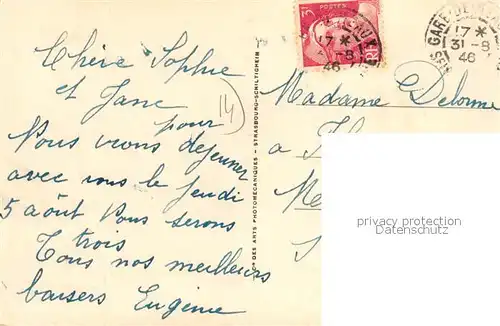 Chère Sophie
et Jane
pour
Nous irons dejeuner
avec vous le Jeudi
5 août Nous serons
trois
Tous nos meilleurs
baisers Eugénie
14
CIE DES ARTS PHOTOMÉCANIQUES - STRASBOURG-SCHILTIGHEIM
3F
POSTES
17 *
31-8
46
GARE
17 *
31-8
46
Madame Delorme
a
privacy protection
Datenschutz